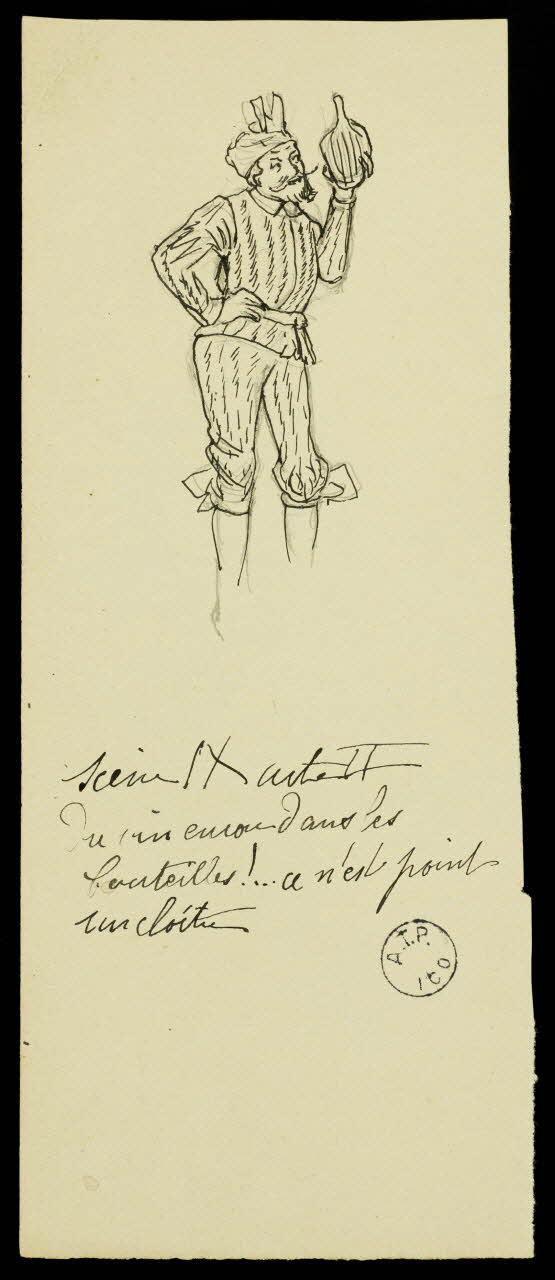 Scène IX acte II
Du vin encore dans les
bouteilles!... ce n'est point
un cloître
A.T.P.
ICO